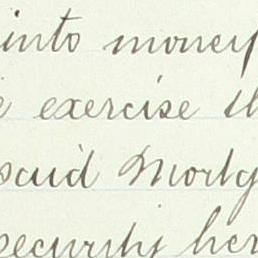 into money
exercise th
said Mortg
security her